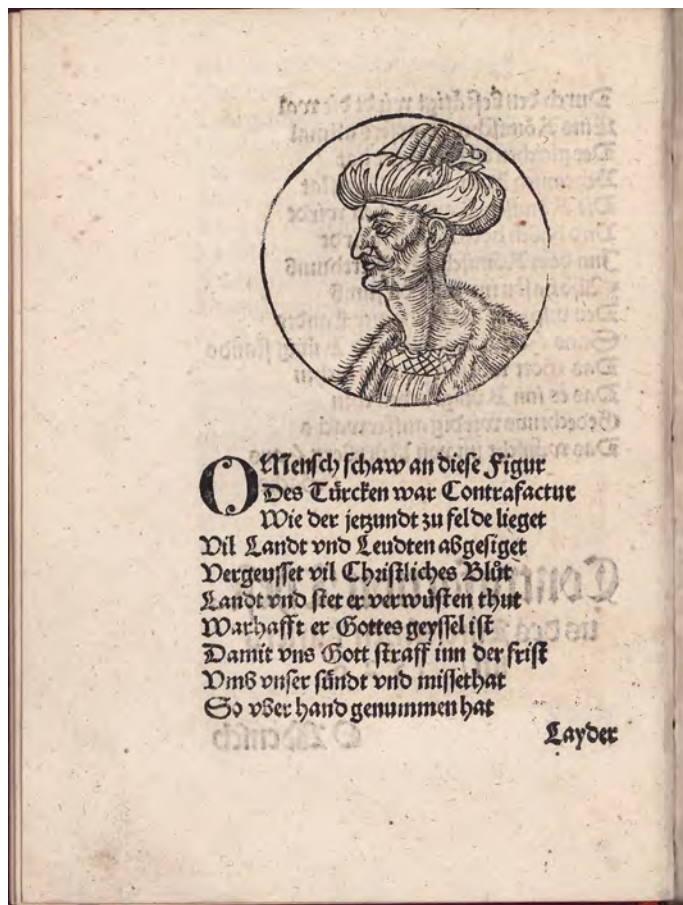 O Mensch schaw an diese Figur
Des Türcken war Contrafactur
Wie der jetzundt zu felde lieget
Vil Landt vnd Leudten absiget
Vergeusset vil Christliches Blůt
Landt vnd stet er verwůsten thut
Warhafft er Gottes geyssel ist
Damit vns Gott straff inn der frist
Vmb vnser sündt vnd missethat
So vber hand genummen hat
Layder